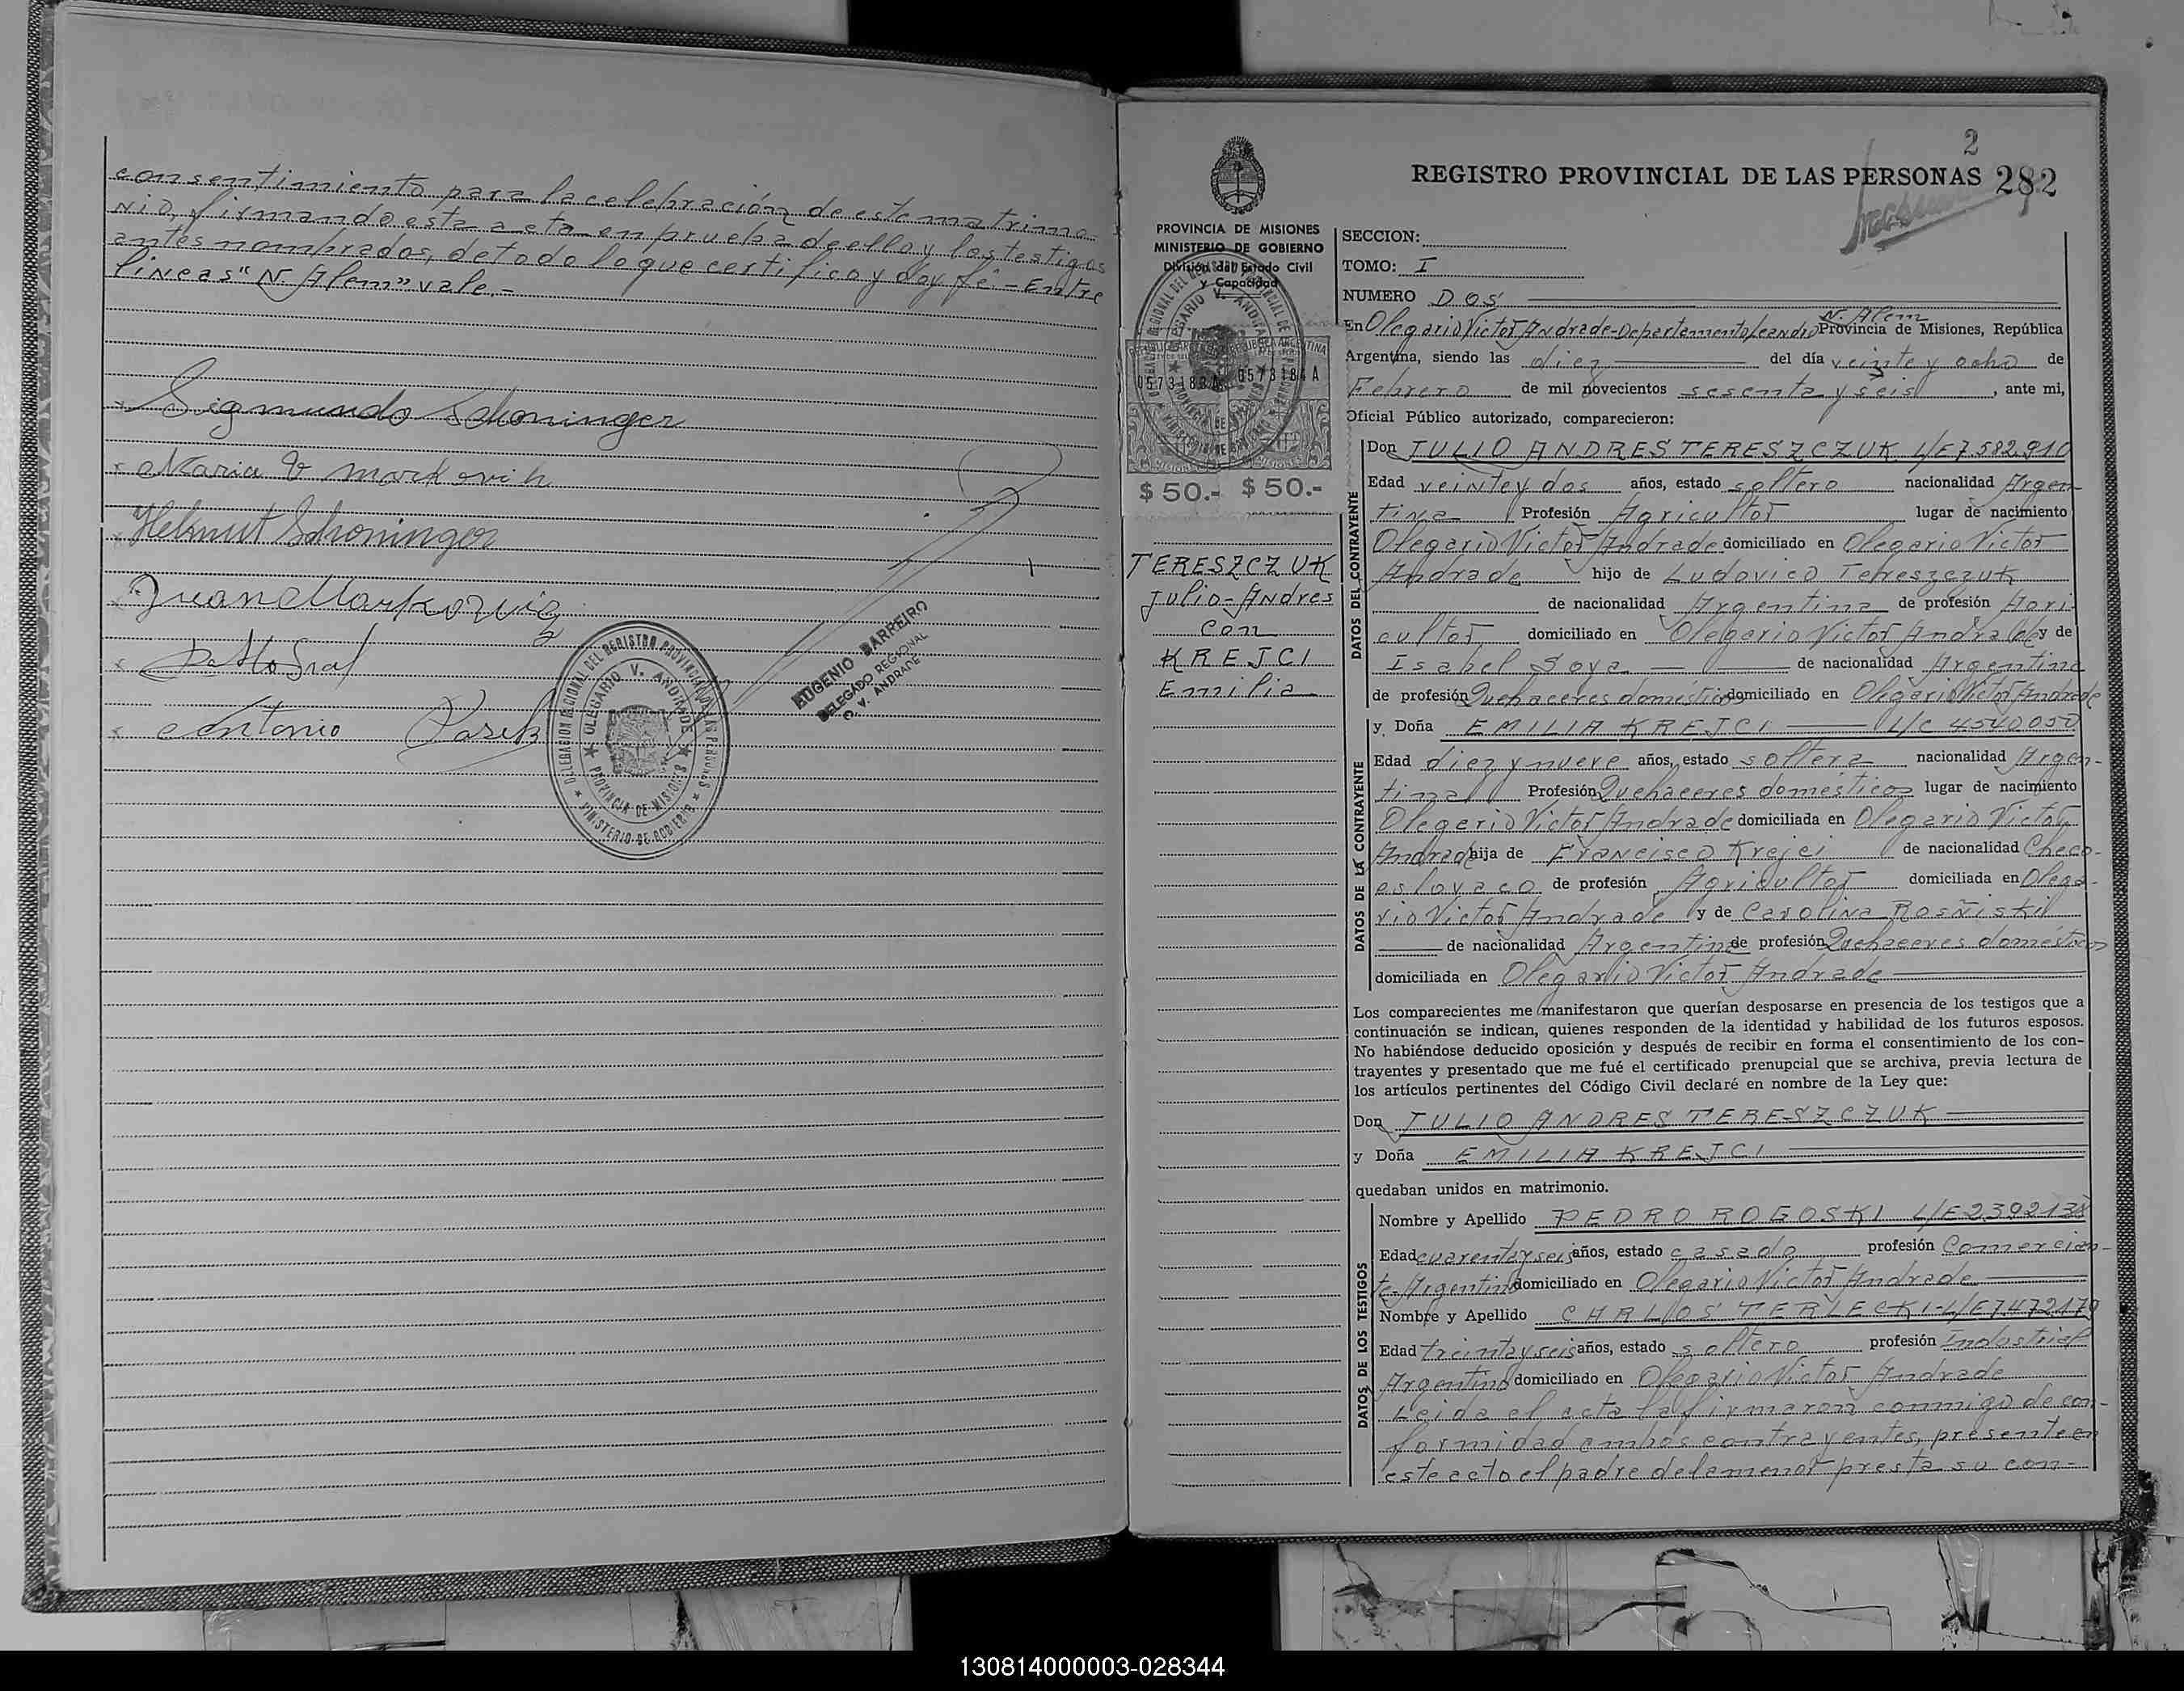 consentimiento para la celebración de este matrimo-
nio, firmando esta acta en prueba de ello y los testigos
antes nombrados, de todo lo que certifico y doy fé.- Entre
líneas "N. Alem" vale.-
Sigmundo Schoninger
Maria V markovih
Helmut Schoninger
Juan Markoviz
Antonio
DELEGACION REGIONAL DEL REGISTRO PROVINCIAL DE LAS PERSONAS
OLEGARIO V. ANDRADE
PROVINCIA DE MISIONES
MINISTERIO DE GOBIERNO
EUGENIO BARREIRO
DELEGADO REGIONAL
O. V. ANDRADE
2
REGISTRO PROVINCIAL DE LAS PERSONAS 282
PROVINCIA DE MISIONES
MINISTERIO DE GOBIERNO
División del Estado Civil
y Capacidad
$ 50.- $ 50.-
TERESZCZUK
Julio-Andres
con
KREJCI
Emilia
SECCION:
TOMO: I
NUMERO DOS
N. Alem
En Olegario Victor Andrade-Departamento Leandro Provincia de Misiones, República
Argentina, siendo las diez del día veinte y ocho de
Febrero de mil novecientos sesenta y seis, ante mi,
Oficial Público autorizado, comparecieron:
DATOS DEL CONTRAYENTE
Don JULIO ANDRES TERESZCZUK L/E 7.582.910
Edad veinte y dos años, estado soltero nacionalidad Argen-
tina Profesión Agricultor lugar de nacimiento
Olegario Victor Andrade domiciliado en Olegario Victor
Andrade hijo de Ludovico Tereszczuk
de nacionalidad Argentina de profesión Agri-
cultor domiciliado en Olegario Victor Andrade y de
Isabel Soya de nacionalidad Argentina
de profesión Quehaceres domésticos domiciliado en Olegario Victor Andrade
DATOS DE LA CONTRAYENTE
y Doña EMILIA KREJCI L/C 4540050
Edad diez y nueve años, estado soltera nacionalidad Argen-
tina Profesión Quehaceres domésticos lugar de nacimiento
Olegario Victor Andrade domiciliada en Olegario Victor
Andrade hija de Francisco Krejci de nacionalidad Checo-
eslovaco de profesión Agricultor domiciliada en Olega-
rio Victor Andrade y de Carolina Rosñiski
de nacionalidad Argentina de profesión Quehaceres domésticos
domiciliada en Olegario Victor Andrade
Los comparecientes me manifestaron que querían desposarse en presencia de los testigos que a
continuación se indican, quienes responden de la identidad y habilidad de los futuros esposos.
No habiéndose deducido oposición y después de recibir en forma el consentimiento de los con-
trayentes y presentado que me fué el certificado prenupcial que se archiva, previa lectura de
los artículos pertinentes del Código Civil declaré en nombre de la Ley que:
Don JULIO ANDRES TERESZCZUK
y Doña EMILIA KREJCI
quedaban unidos en matrimonio.
DATOS DE LOS TESTIGOS
Nombre y Apellido PEDRO ROGOSKI L/E 2392138
Edad cuarenta y seis años, estado casado profesión Comercian-
te-Argentino domiciliado en Olegario Victor Andrade
Nombre y Apellido CARLOS TERLECKI-L/E 7472170
Edad treinta y seis años, estado soltero profesión Industrial
Argentino domiciliado en Olegario Victor Andrade
Leida el acta la firmaron conmigo de con-
formidad ambos contrayentes, presente en
este acto el padre de la menor presta su con-
130814000003-028344